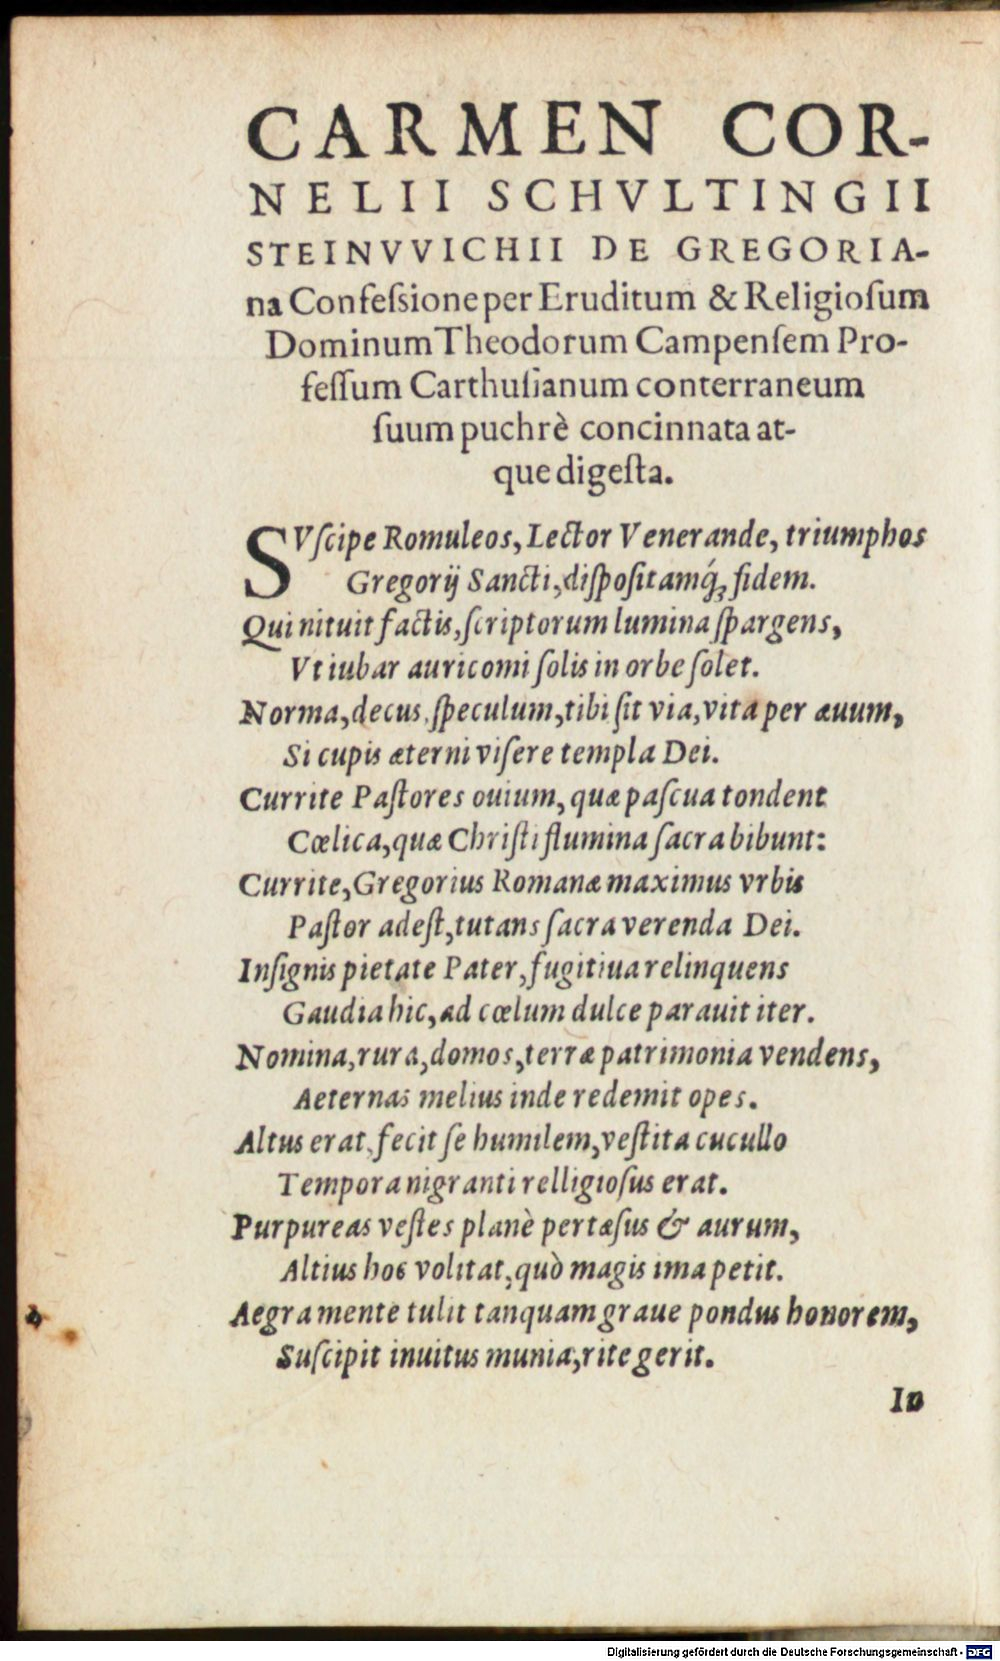 CARMEN COR-
NELII SCHVLTINGII
STEINVVICHII DE GREGORIA-
na Confeſsione per Eruditum & Religioſum
Dominum Theodorum Campenſem Pro-
feſſum Carthuſianum conterraneum
ſuum puchrè concinnata at-
que digeſta.
SVſcipe Romuleos, Lector Venerande, triumphos
Gregorij Sancti, diſpoſitamq́; fidem.
Qui nituit factis, ſcriptorum lumina ſpargens,
Vt iubar auricomi ſolis in orbe ſolet.
Norma, decus, ſpeculum, tibi ſit via, vita per æuum,
Si cupis æterni viſere templa Dei.
Currite Paſtores ouium, quæ paſcua tondent
Cœlica, quæ Chriſti flumina ſacra bibunt:
Currite, Gregorius Romanæ maximus vrbis
Paſtor adeſt, tutans ſacra verenda Dei.
Inſignis pietate Pater, fugitiua relinquens
Gaudia hic, ad cœlum dulce parauit iter.
Nomina, rura, domos, terræ patrimonia vendens,
Aeternas melius inde redemit opes.
Altus erat, fecit ſe humilem, veſtita cucullo
Tempora nigranti relligioſus erat.
Purpureas veſtes planè pertæſus & aurum,
Altius hoc volitat, quò magis ima petit.
Aegra mente tulit tanquam graue pondus honorem,
Suſcipit inuitus munia, rite gerit.
In
Digitalisierung gefördert durch die Deutsche Forschungsgemeinschaft - DFG